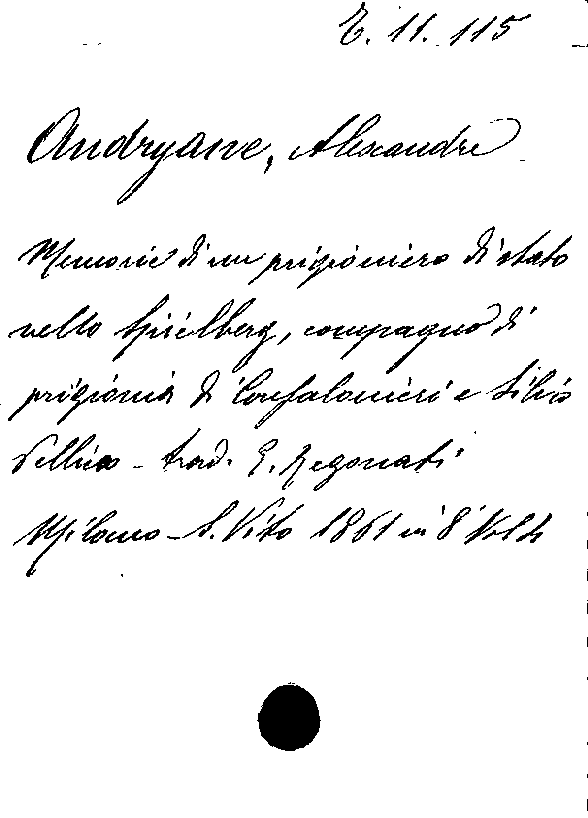 E. 11. 115
Andryane, Alexandre
Memorie di un prigioniero di stato
nello Spielberg, compagno di
prigionia di Confalonieri e Silvio
Pellico - trad. F. Regonati
Milano - S. Vito 1861 in 8° Vol. 4